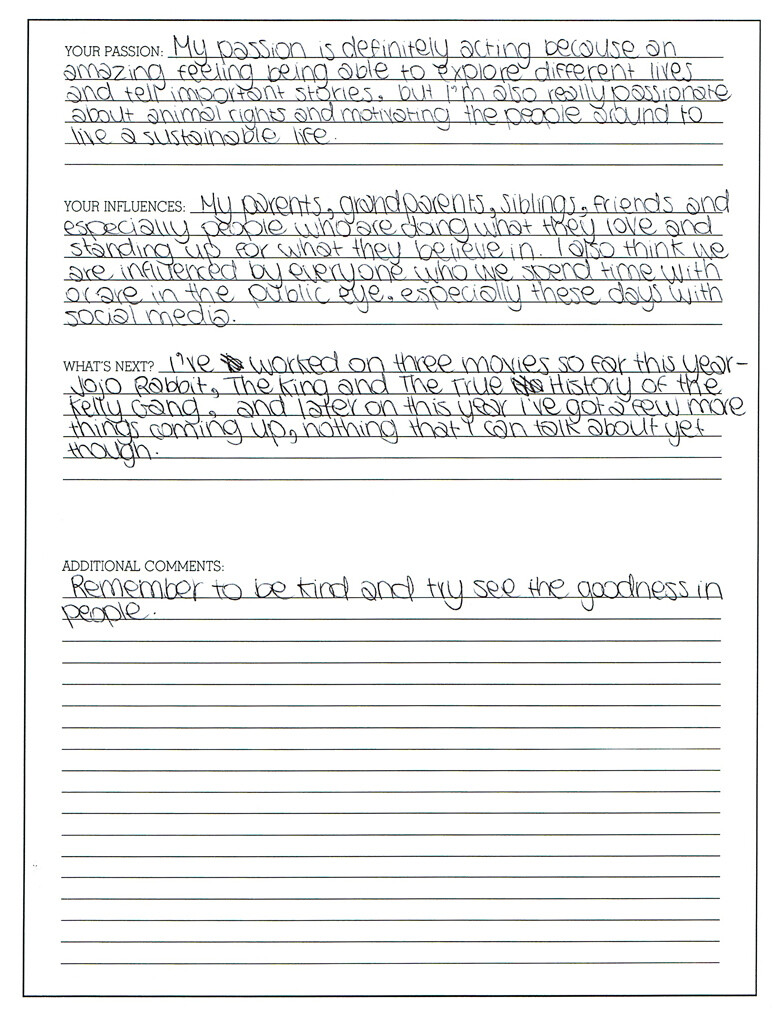 YOUR PASSION: My passion is definitely acting because an
amazing feeling being able to explore different lives
and tell important stories, but I'm also really passionate
about animal rights and motivating the people around to
live a sustainable life.
YOUR INFLUENCES: My parents, grandparents, siblings, friends and
especially people who are doing what they love and
standing up for what they believe in. I also think we
are influenced by everyone who we spend time with
or are in the public eye, especially these days with
social media.
WHAT'S NEXT? I've worked on three movies so far this year-
Jojo Rabbit, The King and The True History of the
Kelly Gang, and later on this year I've got a few more
things coming up, nothing that I can talk about yet
though.
ADDITIONAL COMMENTS:
Remember to be kind and try see the goodness in
people.